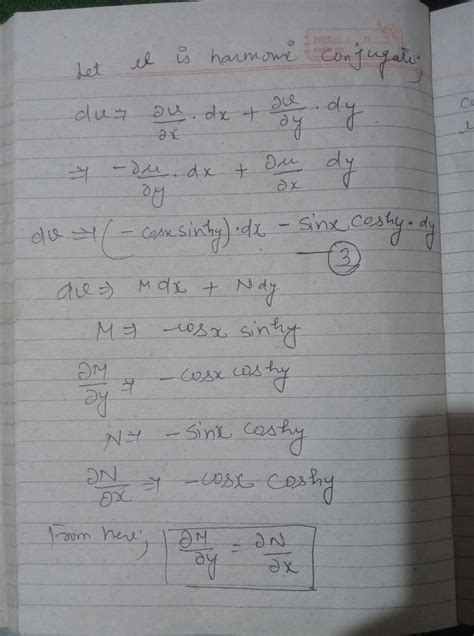 Let u is harmonic conjugate,
dv ⇒ ∂v/∂x . dx + ∂v/∂y . dy
⇒ -∂u/∂y . dx + ∂u/∂x dy
dv ⇒ (-cosx sinhy) . dx - sinx coshy . dy
— ③
dv ⇒ Mdx + Ndy
M ⇒ -cosx sinhy
∂M/∂y ⇒ -cosx coshy
N ⇒ -sinx coshy
∂N/∂x ⇒ -cosx coshy
From here, ∂M/∂y = ∂N/∂x